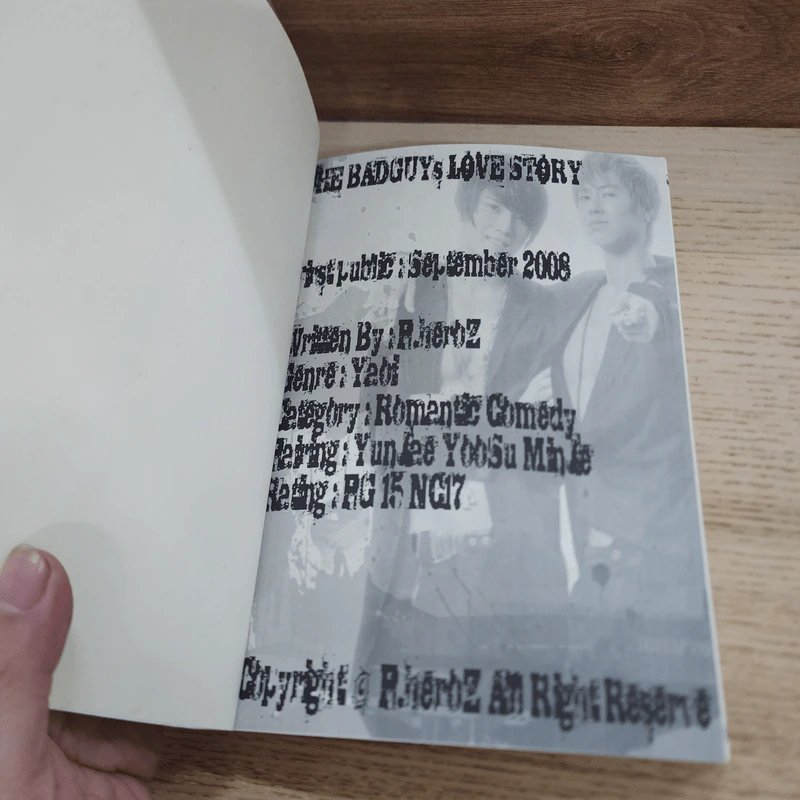 THE BADGUYs LOVE STORY
First public : September 2008
Written By : R.heroZ
Genre : Yaoi
Category : Romantic Comedy
Pairing : YunJae YooSu MinJe
Rating : PG 15 NC17
Copyright © R.heroZ All Right Reserve